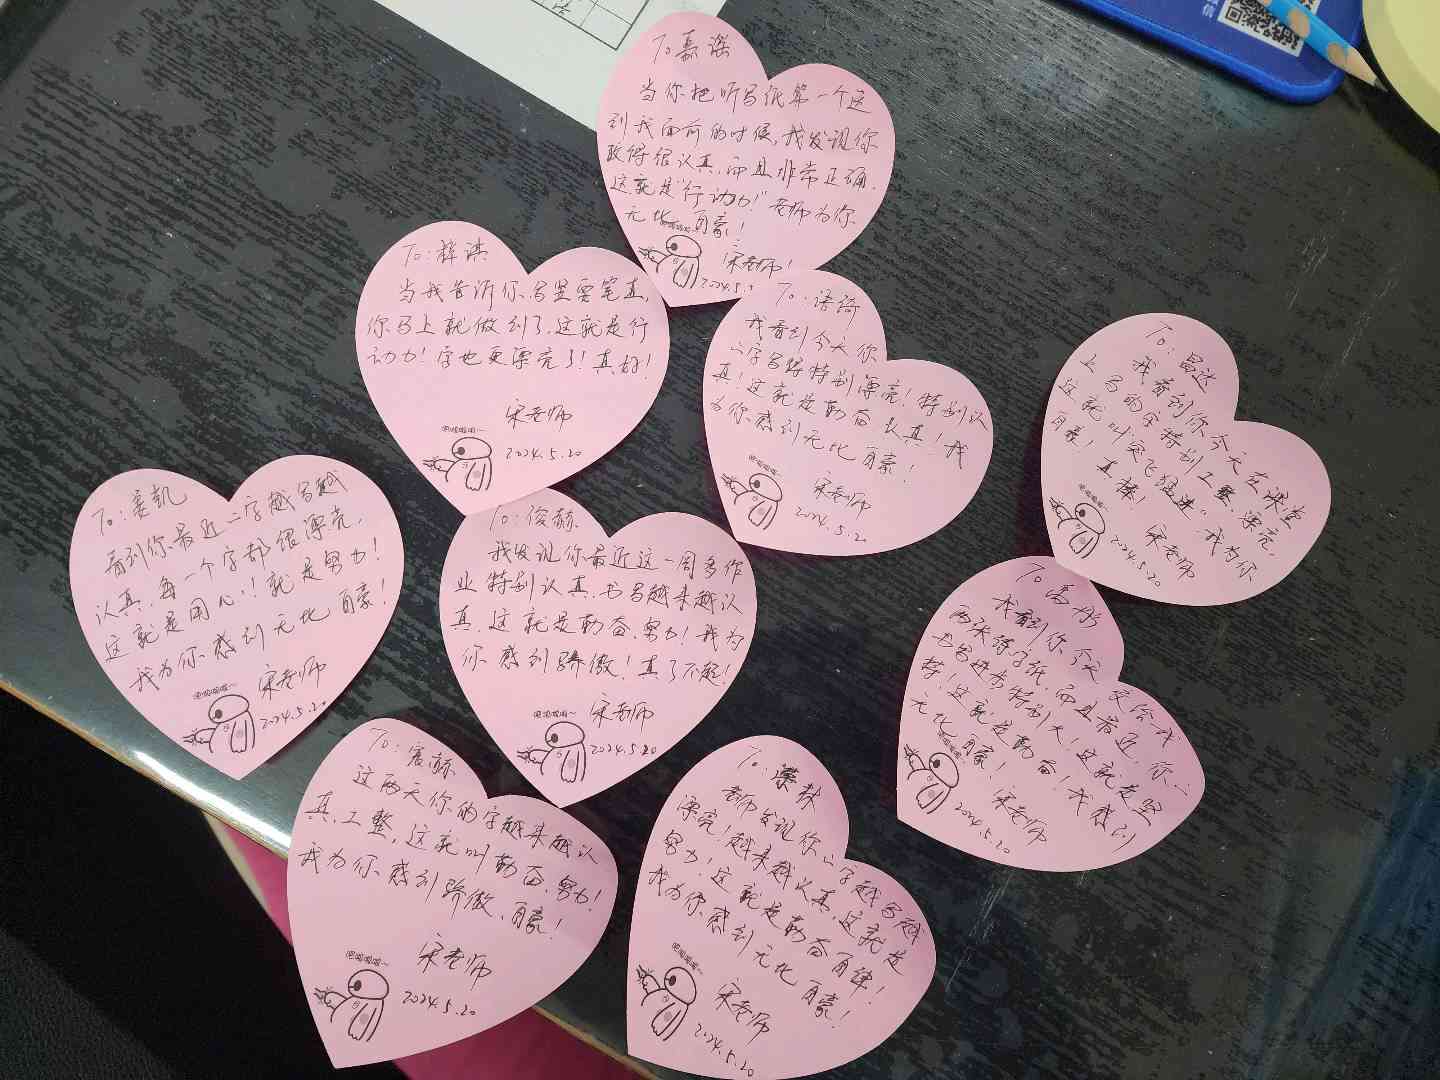 To 嘉谣
当你把听写纸第一个送
到我面前的时候,我发现你
改得很认真,而且非常正确.
这就是“行动力!”老师为你
无比自豪!
宋老师!
2024.5.
To:梓淇
当我告诉你,写竖要笔直,
你马上就做到了,这就是行
动力!字也更漂亮了!真好!
宋老师
2024.5.20
To:语绮
我看到今天你
的字写得特别漂亮!特别认
真!这就是勤奋、认真!我
为你感到无比自豪!
宋老师
2024.5.20
To:昌达
我看到你今天在课堂
上写的字特别工整、漂亮,
这就叫突飞猛进”我为你
自豪!真棒!
宋老师
2024.5.20
To:凯
看到你最近的字越写越
认真,每一个字都很漂亮,
这就是用心!就是努力!
我为你感到无比自豪!
宋老师
2024.5.20
To:俊赫
我发现你最近这一周多作
业特别认真,书写越来越认
真,这就是勤奋、努力!我为
你感到骄傲!真了不起!
宋老师
2024.5.20
To:
我看到你今天交给我
两张练字纸,而且最近,你的
书写进步特别大,这就是坚
持!这就是勤奋!我感到
无比自豪!
宋老师
2024.5.20
To:赫
这两天你的字越来越认
真,工整,这就叫勤奋、努力!
我为你感到骄傲、自豪!
宋老师
2024.5.20
To:
老师发现你的字越写越
漂亮!越来越认真,这就是
努力!这就是勤奋自律!
我为你感到无比自豪!
宋老师
2024.5.20